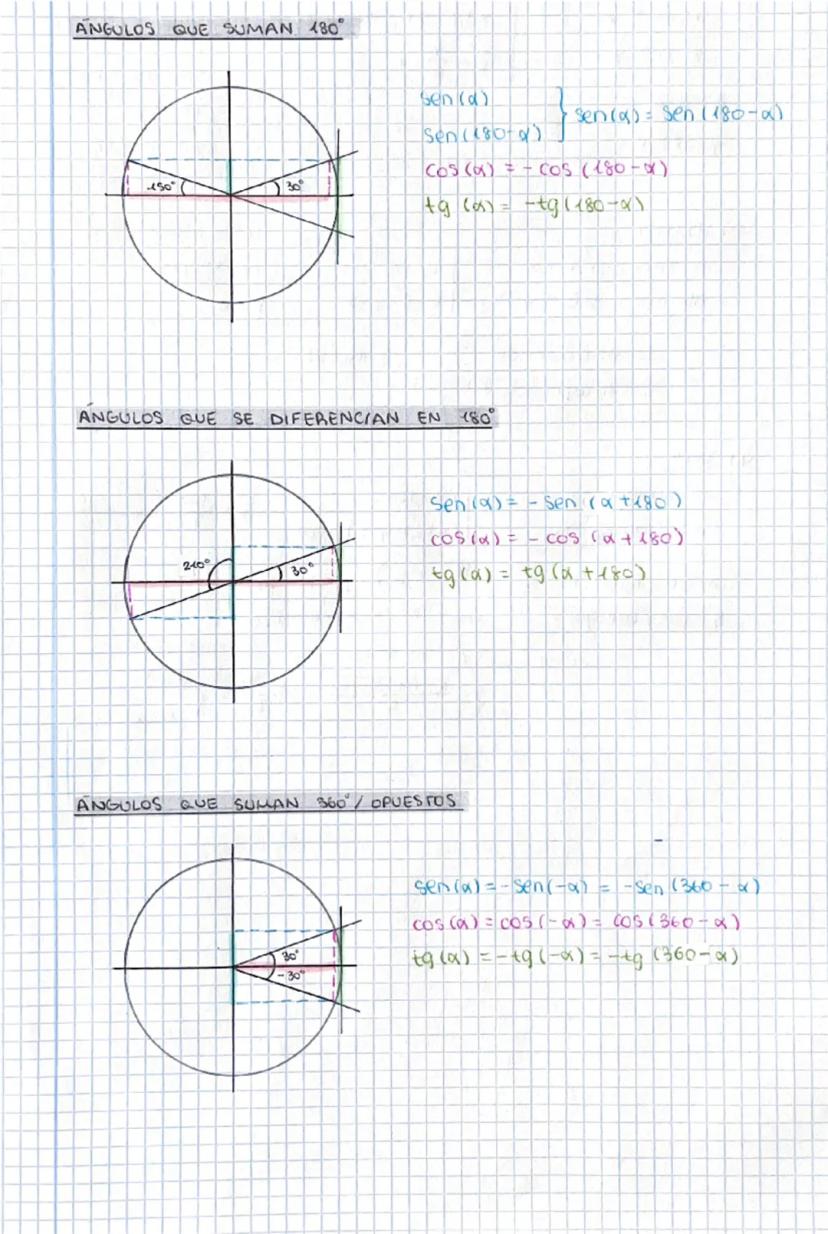 ÁNGULOS QUE SUMAN 180°
sen(α)
sen(180-α)
sen(α) = sen(180-α)
cos(α) = -cos(180-α)
tg(α) = -tg(180-α)
150°
30°
ÁNGULOS QUE SE DIFERENCIAN EN 180°
sen(α) = -sen(α+180)
cos(α) = -cos(α+180)
tg(α) = tg(α+180)
210°
30°
ÁNGULOS QUE SUMAN 360°/OPUESTOS
sen(α) = -sen(-α) = -sen(360-α)
cos(α) = cos(-α) = cos(360-α)
tg(α) = -tg(-α) = -tg(360-α)
30°
-30°